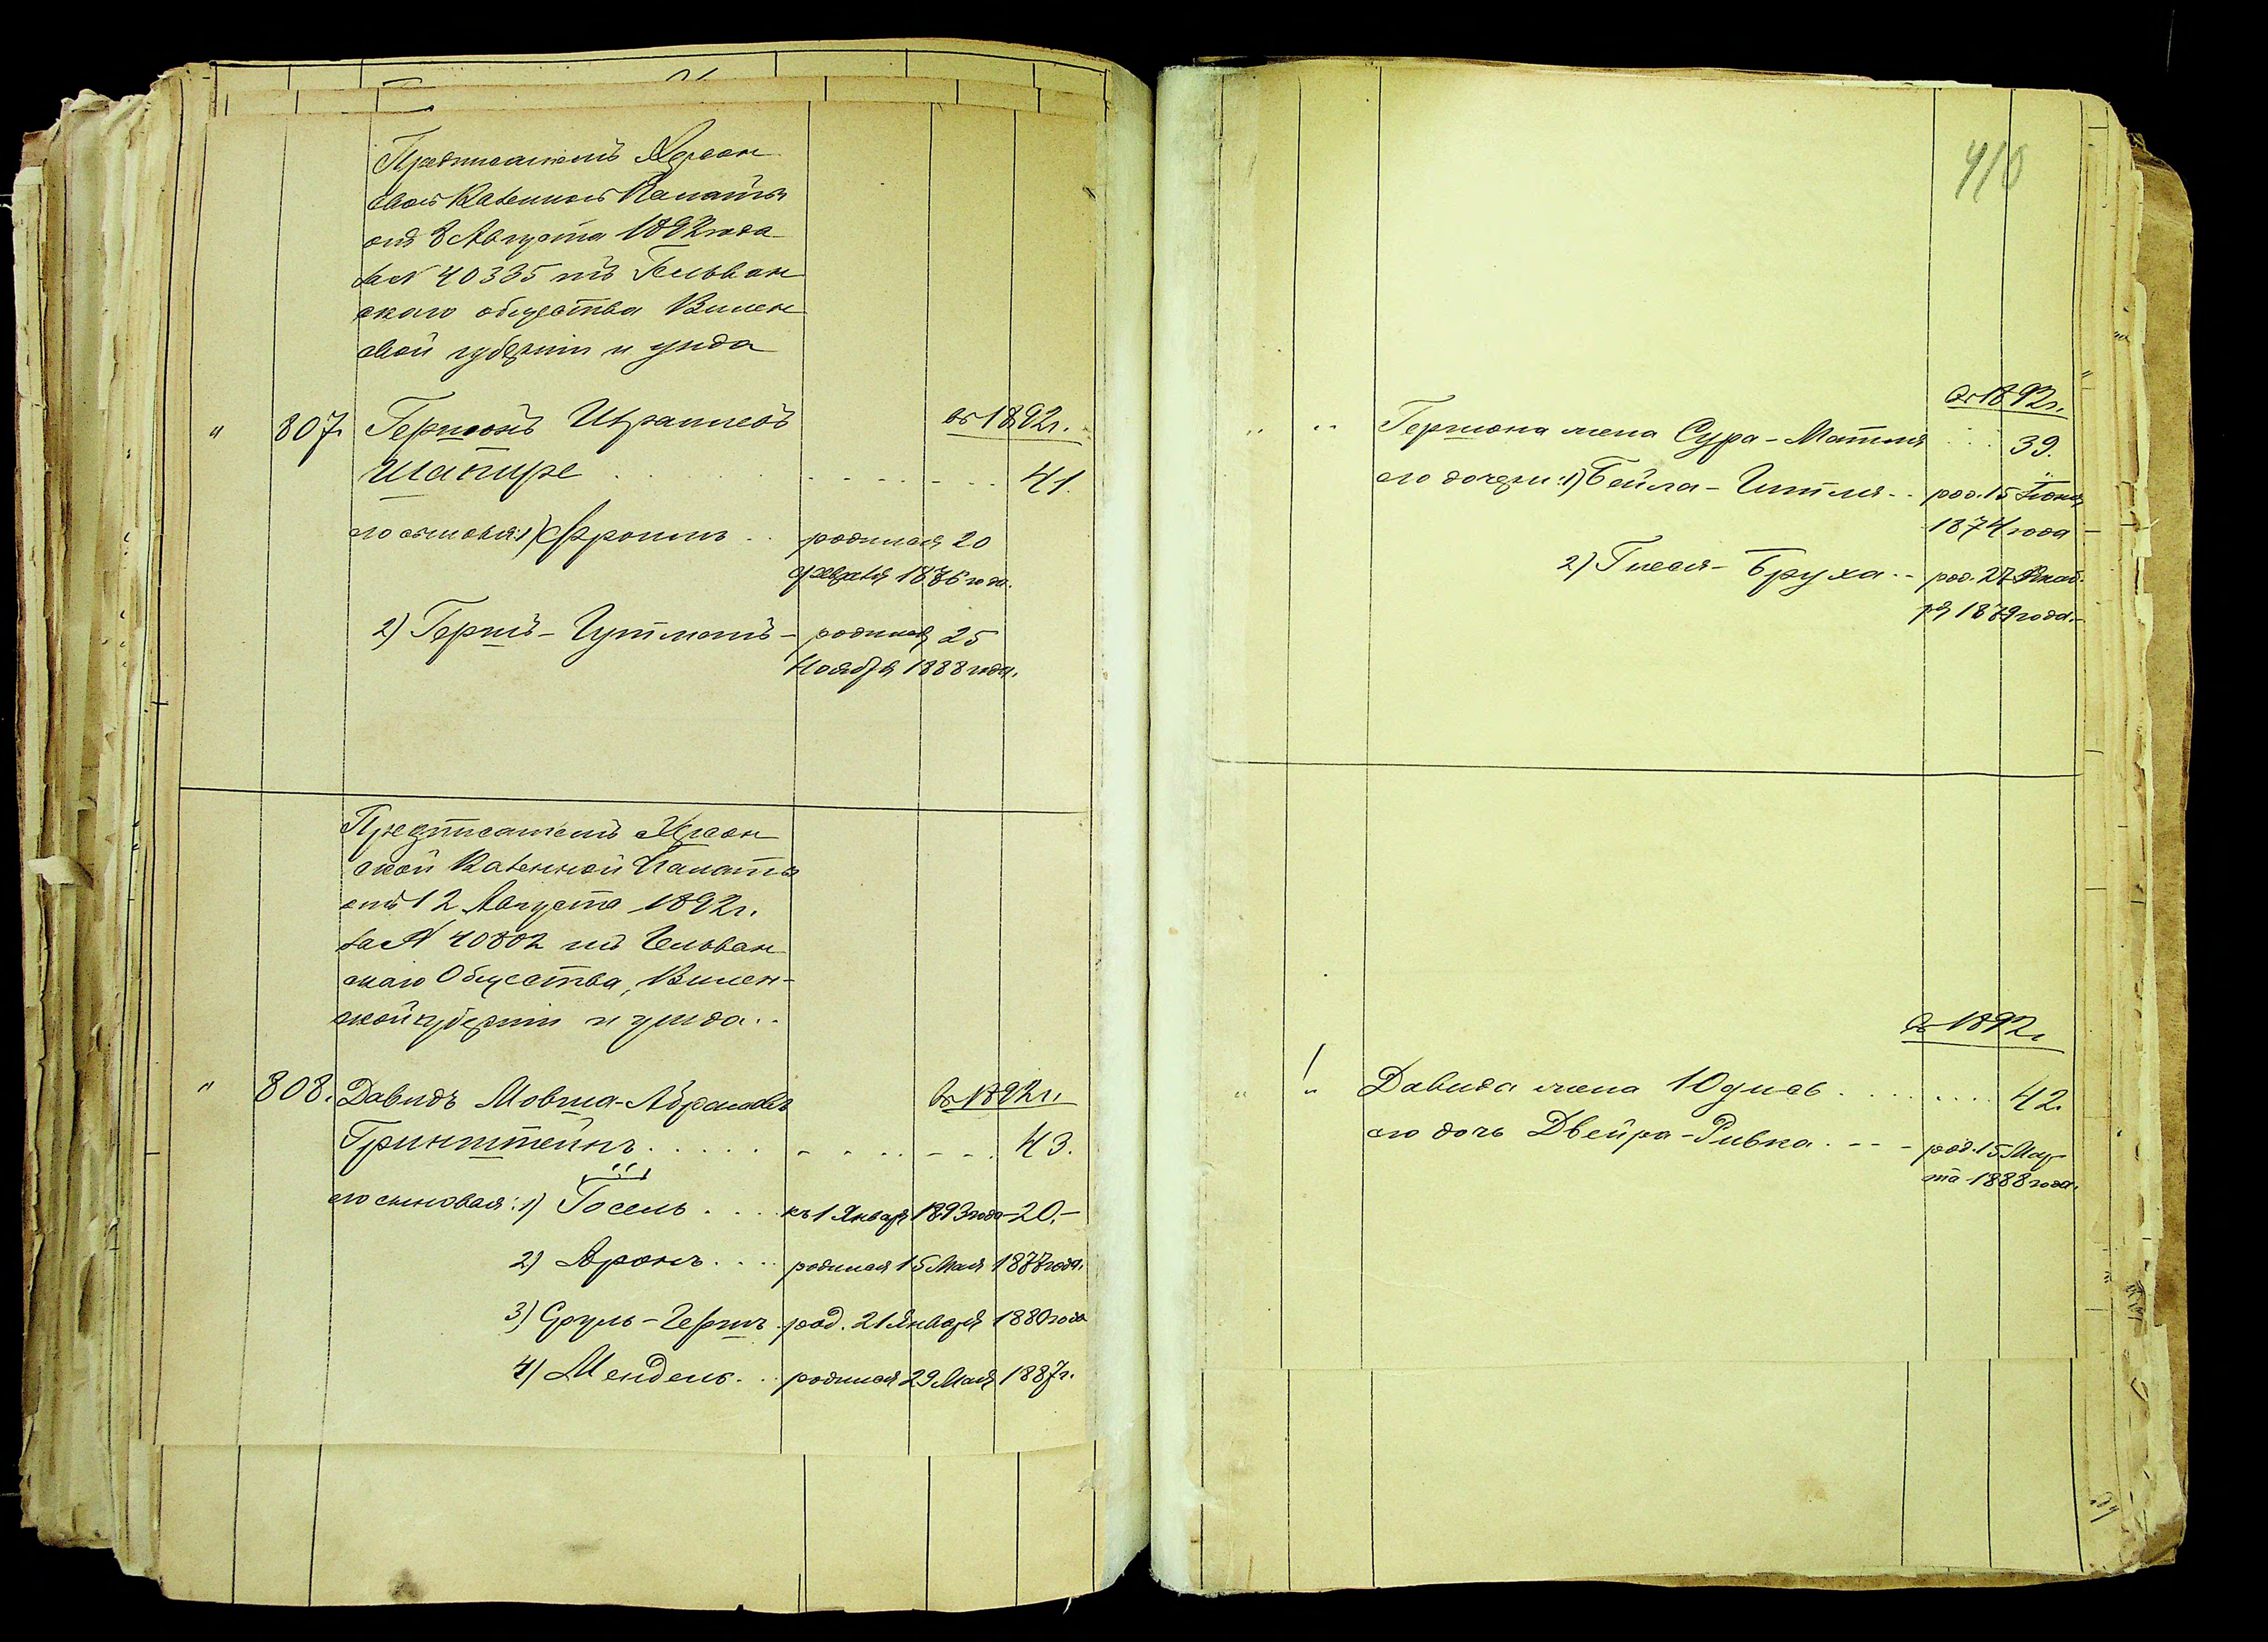 Предписаніемъ Херсон
ской Казенной Палаты
отъ 8 Августа 1892 года
за N 40335 изъ Гельван
скаго общества Вилен
ской губерніи и уѣзда
" 807. Гершонъ Израилевъ въ 1892 г.
Шапире 41.
его сыновья: 1) Фроимъ родился 20
февраля 1876 года.
2) Гершъ-Гутманъ - родился 25
Ноября 1888 года.
Предписаніемъ Херсон
ской Казенной Палаты
отъ 12 Августа 1892 г.
за N 40802 изъ Гельван
скаго Общества, Вилен-
ской губерніи и уѣзда.
" 808. Давидъ Мовша-Абрамовъ въ 1892 г.
Гринштейнъ 43.
его сыновья: 1) Іосель къ 1 Января 1893 года - 20. -
2) Аронъ родился 15 Мая 1877 года.
3) Сруль-Гершъ род. 21 Января 1880 года
4) Мендель родился 29 Мая 1887 г.
410
въ 1892 г.
" " Гершона жена Сура-Матля 39.
его дочери: 1) Бейла-Гитля род. 15 Іюня
1874 года -
2) Гнеся-Бруха род. 27 Декаб
ря 1879 года. -
въ 1892 г.
" " Давида жена Юдись 42.
его дочь Двейра-Ривка род. 15 Мар
та 1888 года.